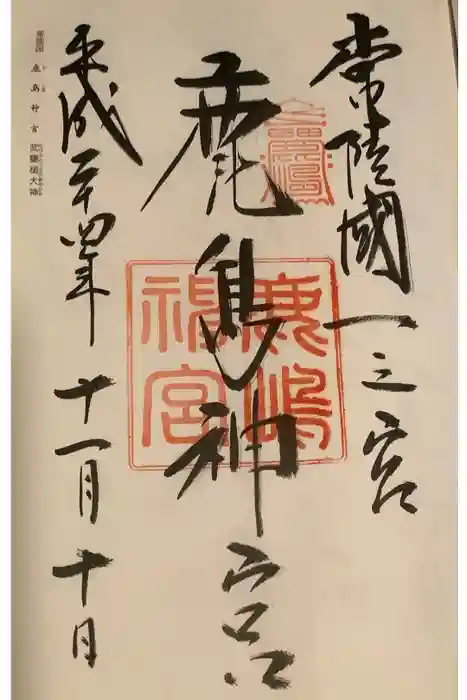 常陸國一之宮
鹿島神宮
鹿嶋神宮
平成二十四年十一月十日
常陸国 鹿島神宮 武甕槌大神